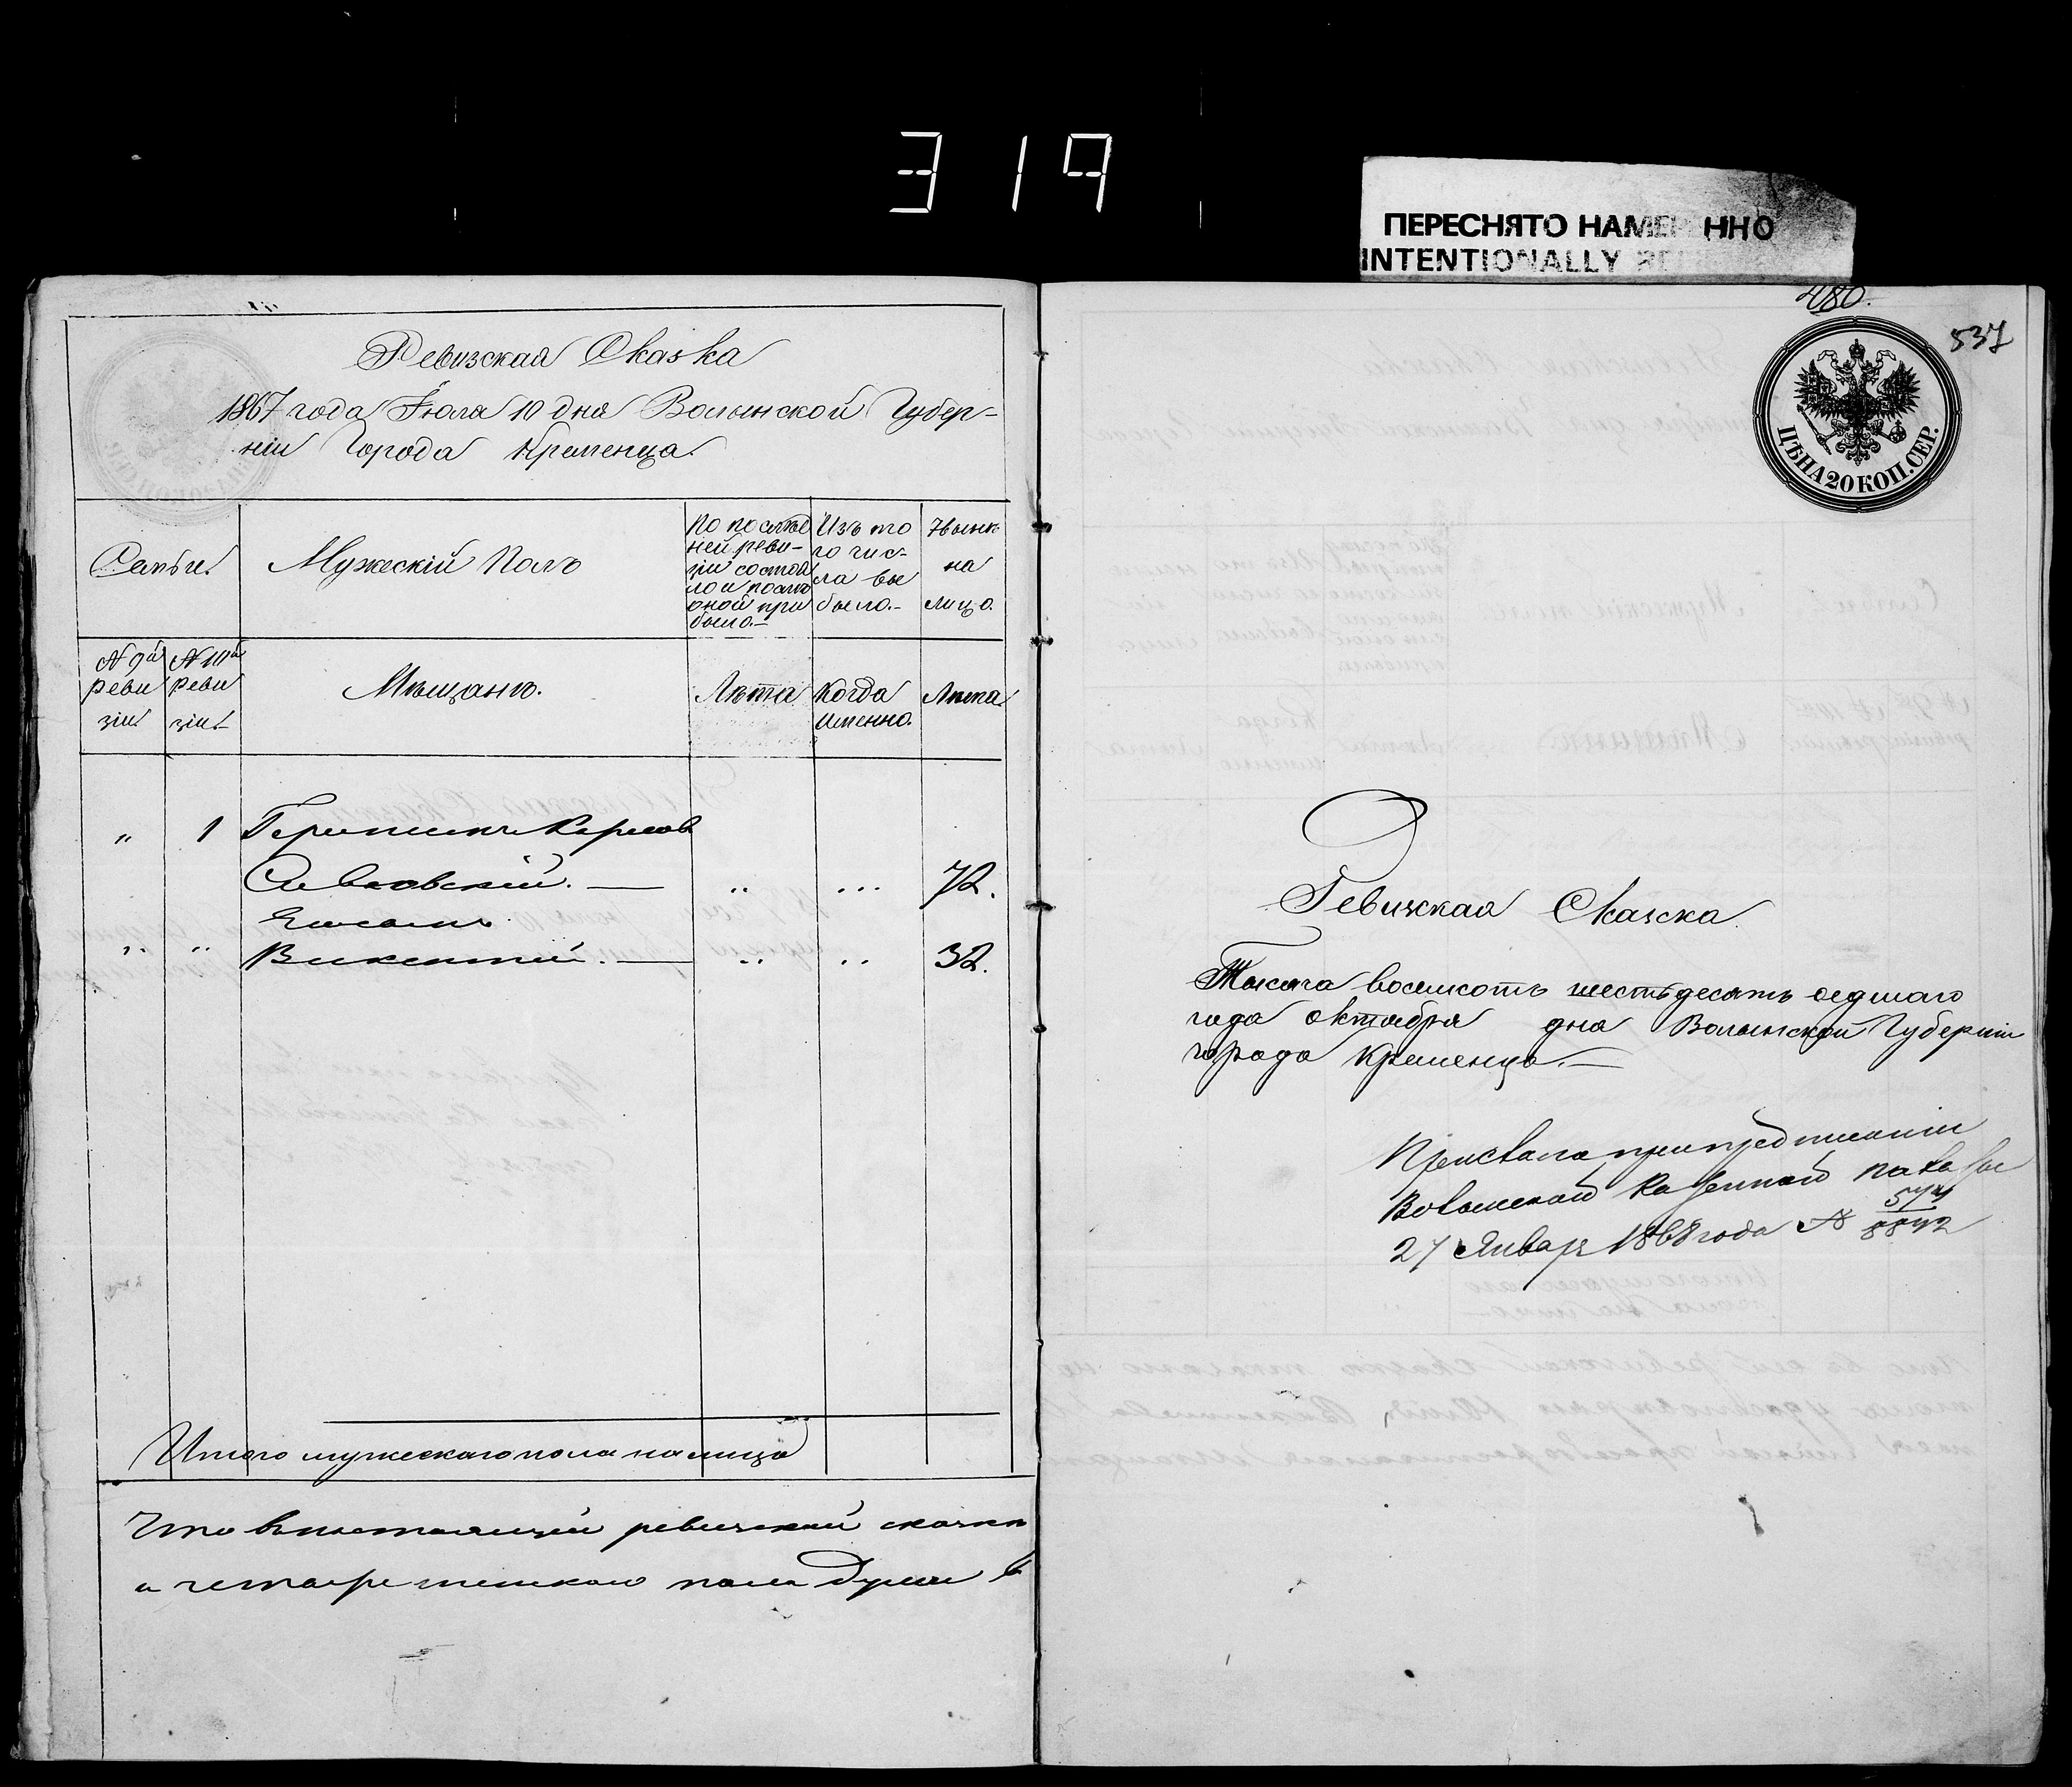 319
ПЕРЕСНЯТО НАМЕР ННО
INTENTIONALLY
Ревизская Сказка
1867 года Іюля 10 дня Волынской Губер-
ніи Города Кременца.
Семьи.
Мужескій Полъ
По послѣд
ней реви-
зіи состоя
ло и послѣ
оной при
было.-
Изъ то
го чис-
ла вы
было.-
Нынѣ
на
лицо.
№ 9й
реви
зіи
№ 10й
реви
зіи
Мѣщанъ.
Лѣта
Когда
именно.
Лѣта
„ 1
72.
Викентій. — „ „ 32.
Итого мужескаго пола на лицо
Что въ настоящей ревизской сказки
480.
537
ЦѢНА 20 КОП. СЕР.
Ревизская Сказска
Тысяча восемсотъ шестьдесятъ седмаго
года октября дня Волынской Губерніи
города Кременца.—
Прислана при предписаніи
Волынской Казенной палаты
27 Январ 1868 года №